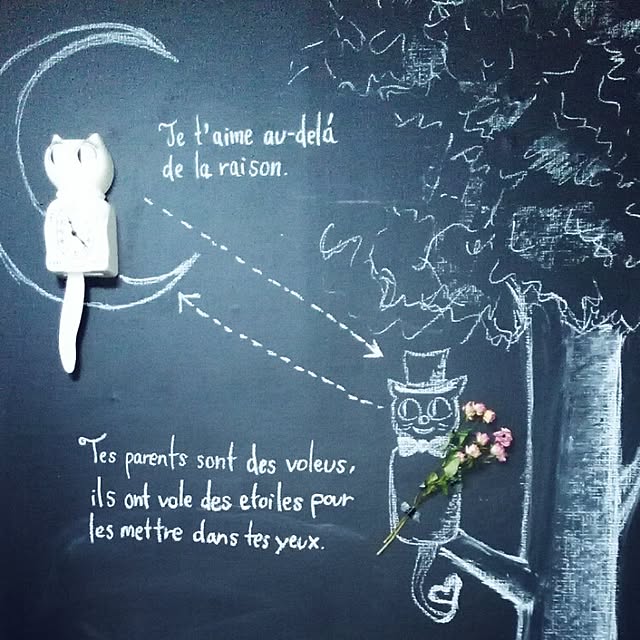 Je t'aime au-delá
de la raison.
Tes parents sont des voleus,
ils ont vole des etoiles pour
les mettre dans tes yeux.